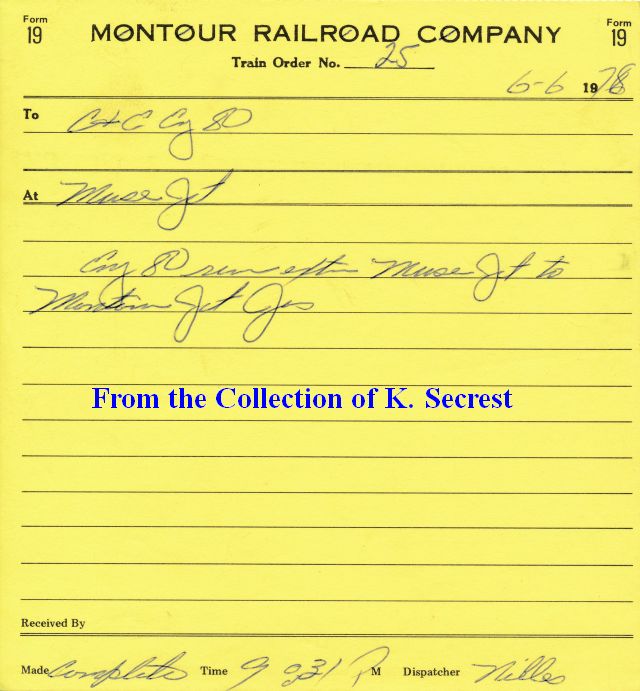 Form 19 MONTOUR RAILROAD COMPANY Form 19
Train Order No. 25
6-6 1978
To C+E Eng 80
At Muse Jct
Eng 80 run extra Muse Jct to
Montour Jct
From the Collection of K. Secrest
Received By
Made Complete Time 9 31 P M Dispatcher